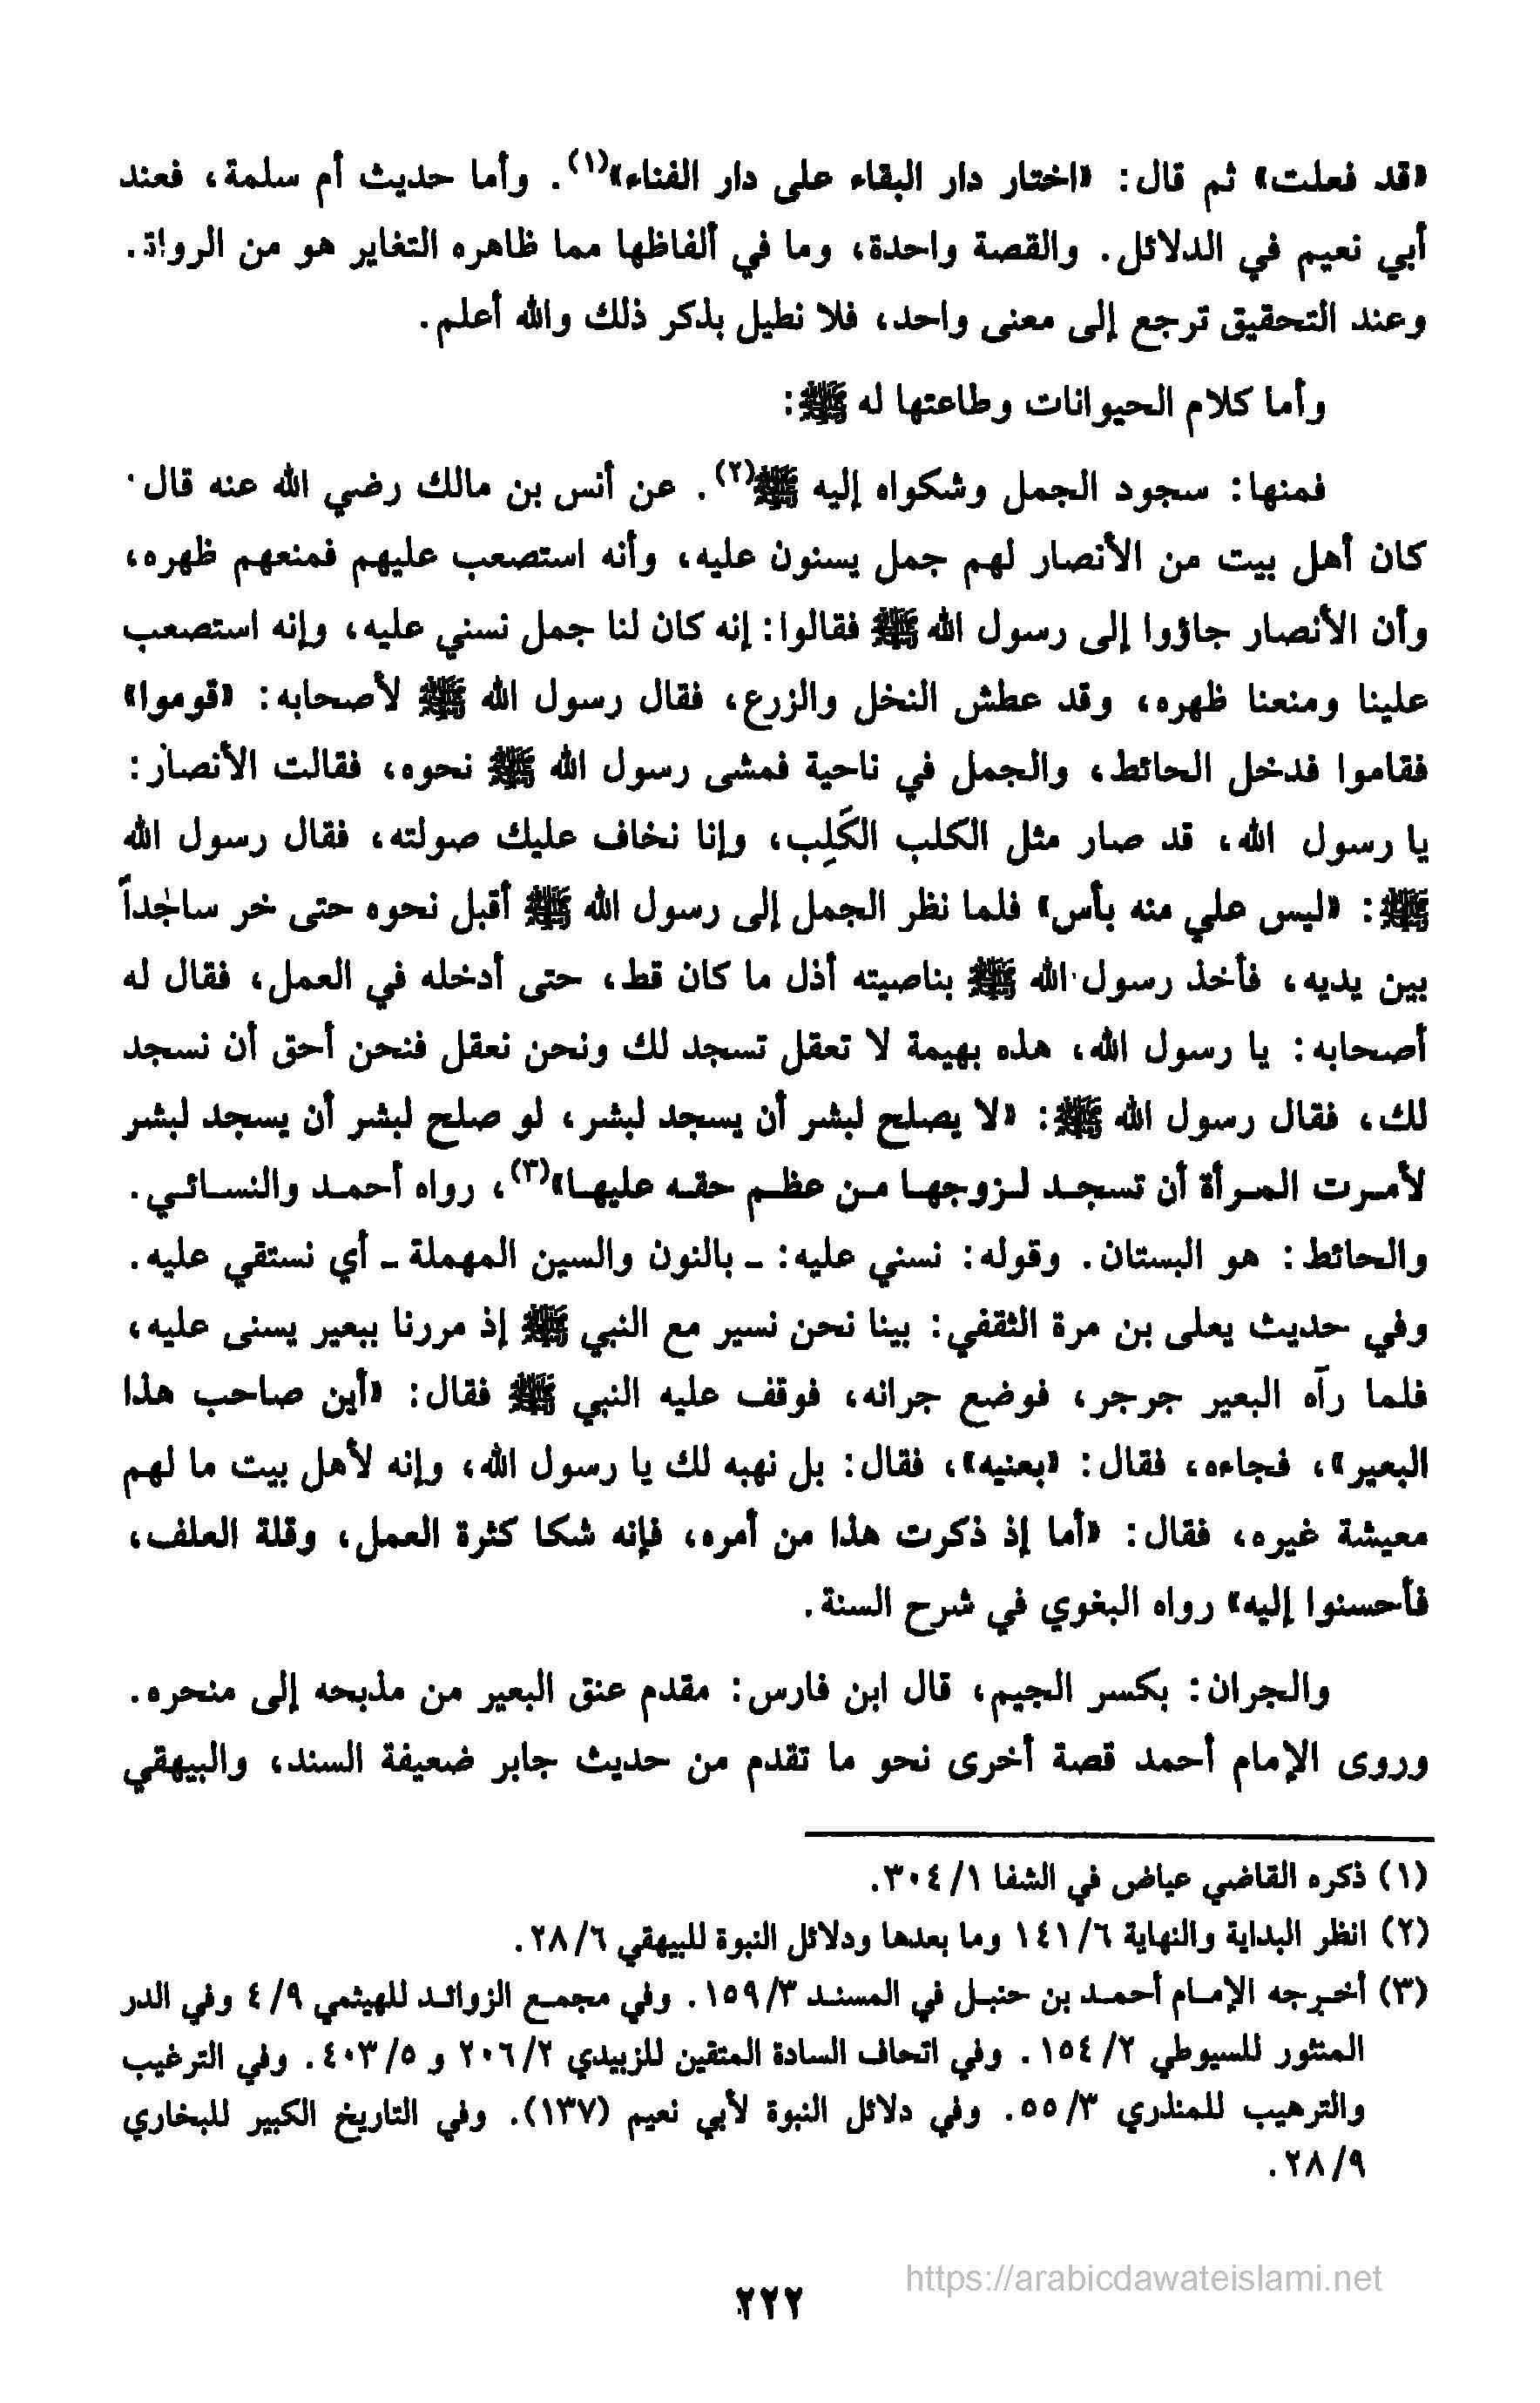 «قد فعلت» ثم قال: «اختار دار البقاء على دار الفناء»(١). وأما حديث أم سلمة، فعند
أبي نعيم في الدلائل. والقصة واحدة، وما في ألفاظها مما ظاهره التغاير هو من الرواة.
وعند التحقيق ترجع إلى معنى واحد، فلا نطيل بذكر ذلك والله أعلم.
وأما كلام الحيوانات وطاعتها له ﷺ:
فمنها: سجود الجمل وشكواه إليه ﷺ(٢). عن أنس بن مالك رضي الله عنه قال
كان أهل بيت من الأنصار لهم جمل يسنون عليه، وأنه استصعب عليهم فمنعهم ظهره،
وأن الأنصار جاؤوا إلى رسول الله ﷺ فقالوا: إنه كان لنا جمل نسني عليه، وإنه استصعب
علينا ومنعنا ظهره، وقد عطش النخل والزرع، فقال رسول الله ﷺ لأصحابه: «قوموا»
فقاموا فدخل الحائط، والجمل في ناحية فمشى رسول الله ﷺ نحوه، فقالت الأنصار:
يا رسول الله، قد صار مثل الكلب الكَلِب، وإنا نخاف عليك صولته، فقال رسول الله
ﷺ: «ليس علي منه بأس» فلما نظر الجمل إلى رسول الله ﷺ أقبل نحوه حتى خر ساجداً
بين يديه، فأخذ رسول الله ﷺ بناصيته أذل ما كان قط، حتى أدخله في العمل، فقال له
أصحابه: يا رسول الله، هذه بهيمة لا تعقل تسجد لك ونحن نعقل فنحن أحق أن نسجد
لك، فقال رسول الله ﷺ: «لا يصلح لبشر أن يسجد لبشر، لو صلح لبشر أن يسجد لبشر
لأمرت المرأة أن تسجد لزوجها من عظم حقه عليها»(٣)، رواه أحمد والنسائي.
والحائط: هو البستان. وقوله: نسني عليه: ـ بالنون والسين المهملة ـ أي نستقي عليه.
وفي حديث يعلى بن مرة الثقفي: بينا نحن نسير مع النبي ﷺ إذ مررنا ببعير يسنى عليه،
فلما رآه البعير جرجر، فوضع جرانه، فوقف عليه النبي ﷺ فقال: «أين صاحب هذا
البعير»، فجاءه، فقال: «بعنيه»، فقال: بل نهبه لك يا رسول الله، وإنه لأهل بيت ما لهم
معيشة غيره، فقال: «أما إذ ذكرت هذا من أمره، فإنه شكا كثرة العمل، وقلة العلف،
فأحسنوا إليه» رواه البغوي في شرح السنة.
والجران: بكسر الجيم، قال ابن فارس: مقدم عنق البعير من مذبحه إلى منحره.
وروى الإمام أحمد قصة أخرى نحو ما تقدم من حديث جابر ضعيفة السند، والبيهقي
(١) ذكره القاضي عياض في الشفا ٣٠٤/١.
(٢) انظر البداية والنهاية ١٤١/٦ وما بعدها ودلائل النبوة للبيهقي ٢٨/٦.
(٣) أخرجه الإمام أحمد بن حنبل في المسند ١٥٩/٣. وفي مجمع الزوائد للهيثمي ٤/٩ وفي الدر
المنثور للسيوطي ١٥٤/٢. وفي اتحاف السادة المتقين للزبيدي ٢٠٦/٢ و ٤٠٣/٥. وفي الترغيب
والترهيب للمنذري ٥٥/٣. وفي دلائل النبوة لأبي نعيم (١٣٧). وفي التاريخ الكبير للبخاري
٢٨/٩.
https://arabicdawateislami.net
٢٢٢